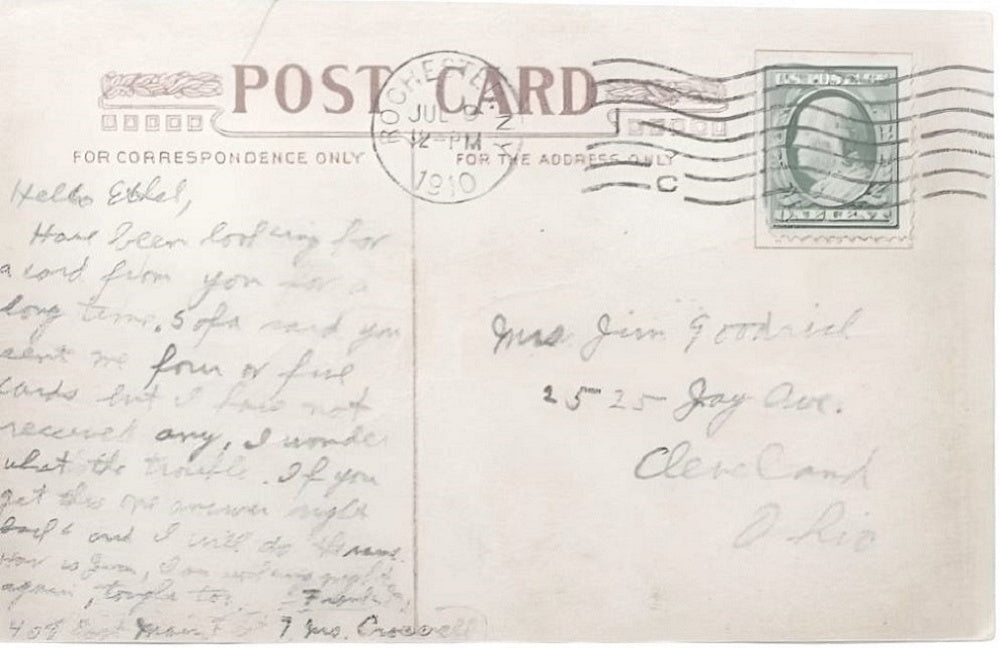 POST CARD
ROCHESTER N.Y.
JUL 9
12-PM
1910
C
FOR CORRESPONDENCE ONLY
FOR THE ADDRESS ONLY
U.S. POSTAGE
Hello Ethel,
Have been looking for
a card from you for a
long time. Sofa said you
sent me four or five
cards but I have not
received any, I wonder
what the trouble. If you
get this one answer right
back and I will do the same.
How is Jim, I am working
again, tough too.
409 East Main Mrs.
Mrs Jim Goodrich
2525 Jay Ave.
Cleveland
Ohio